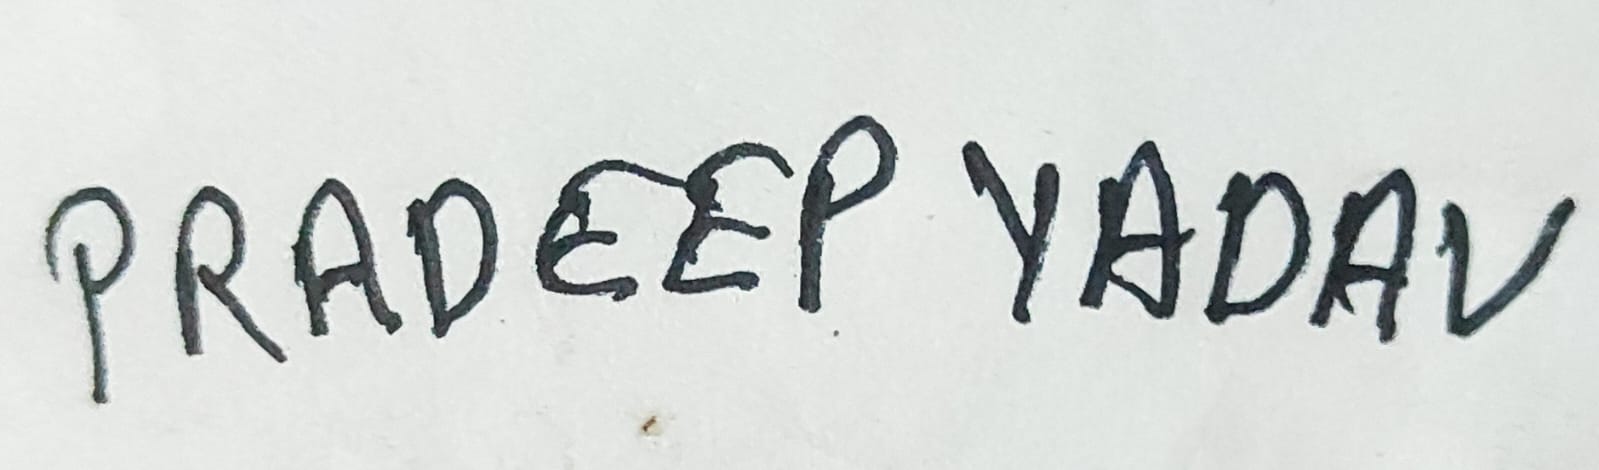 PRADEEP YADAV